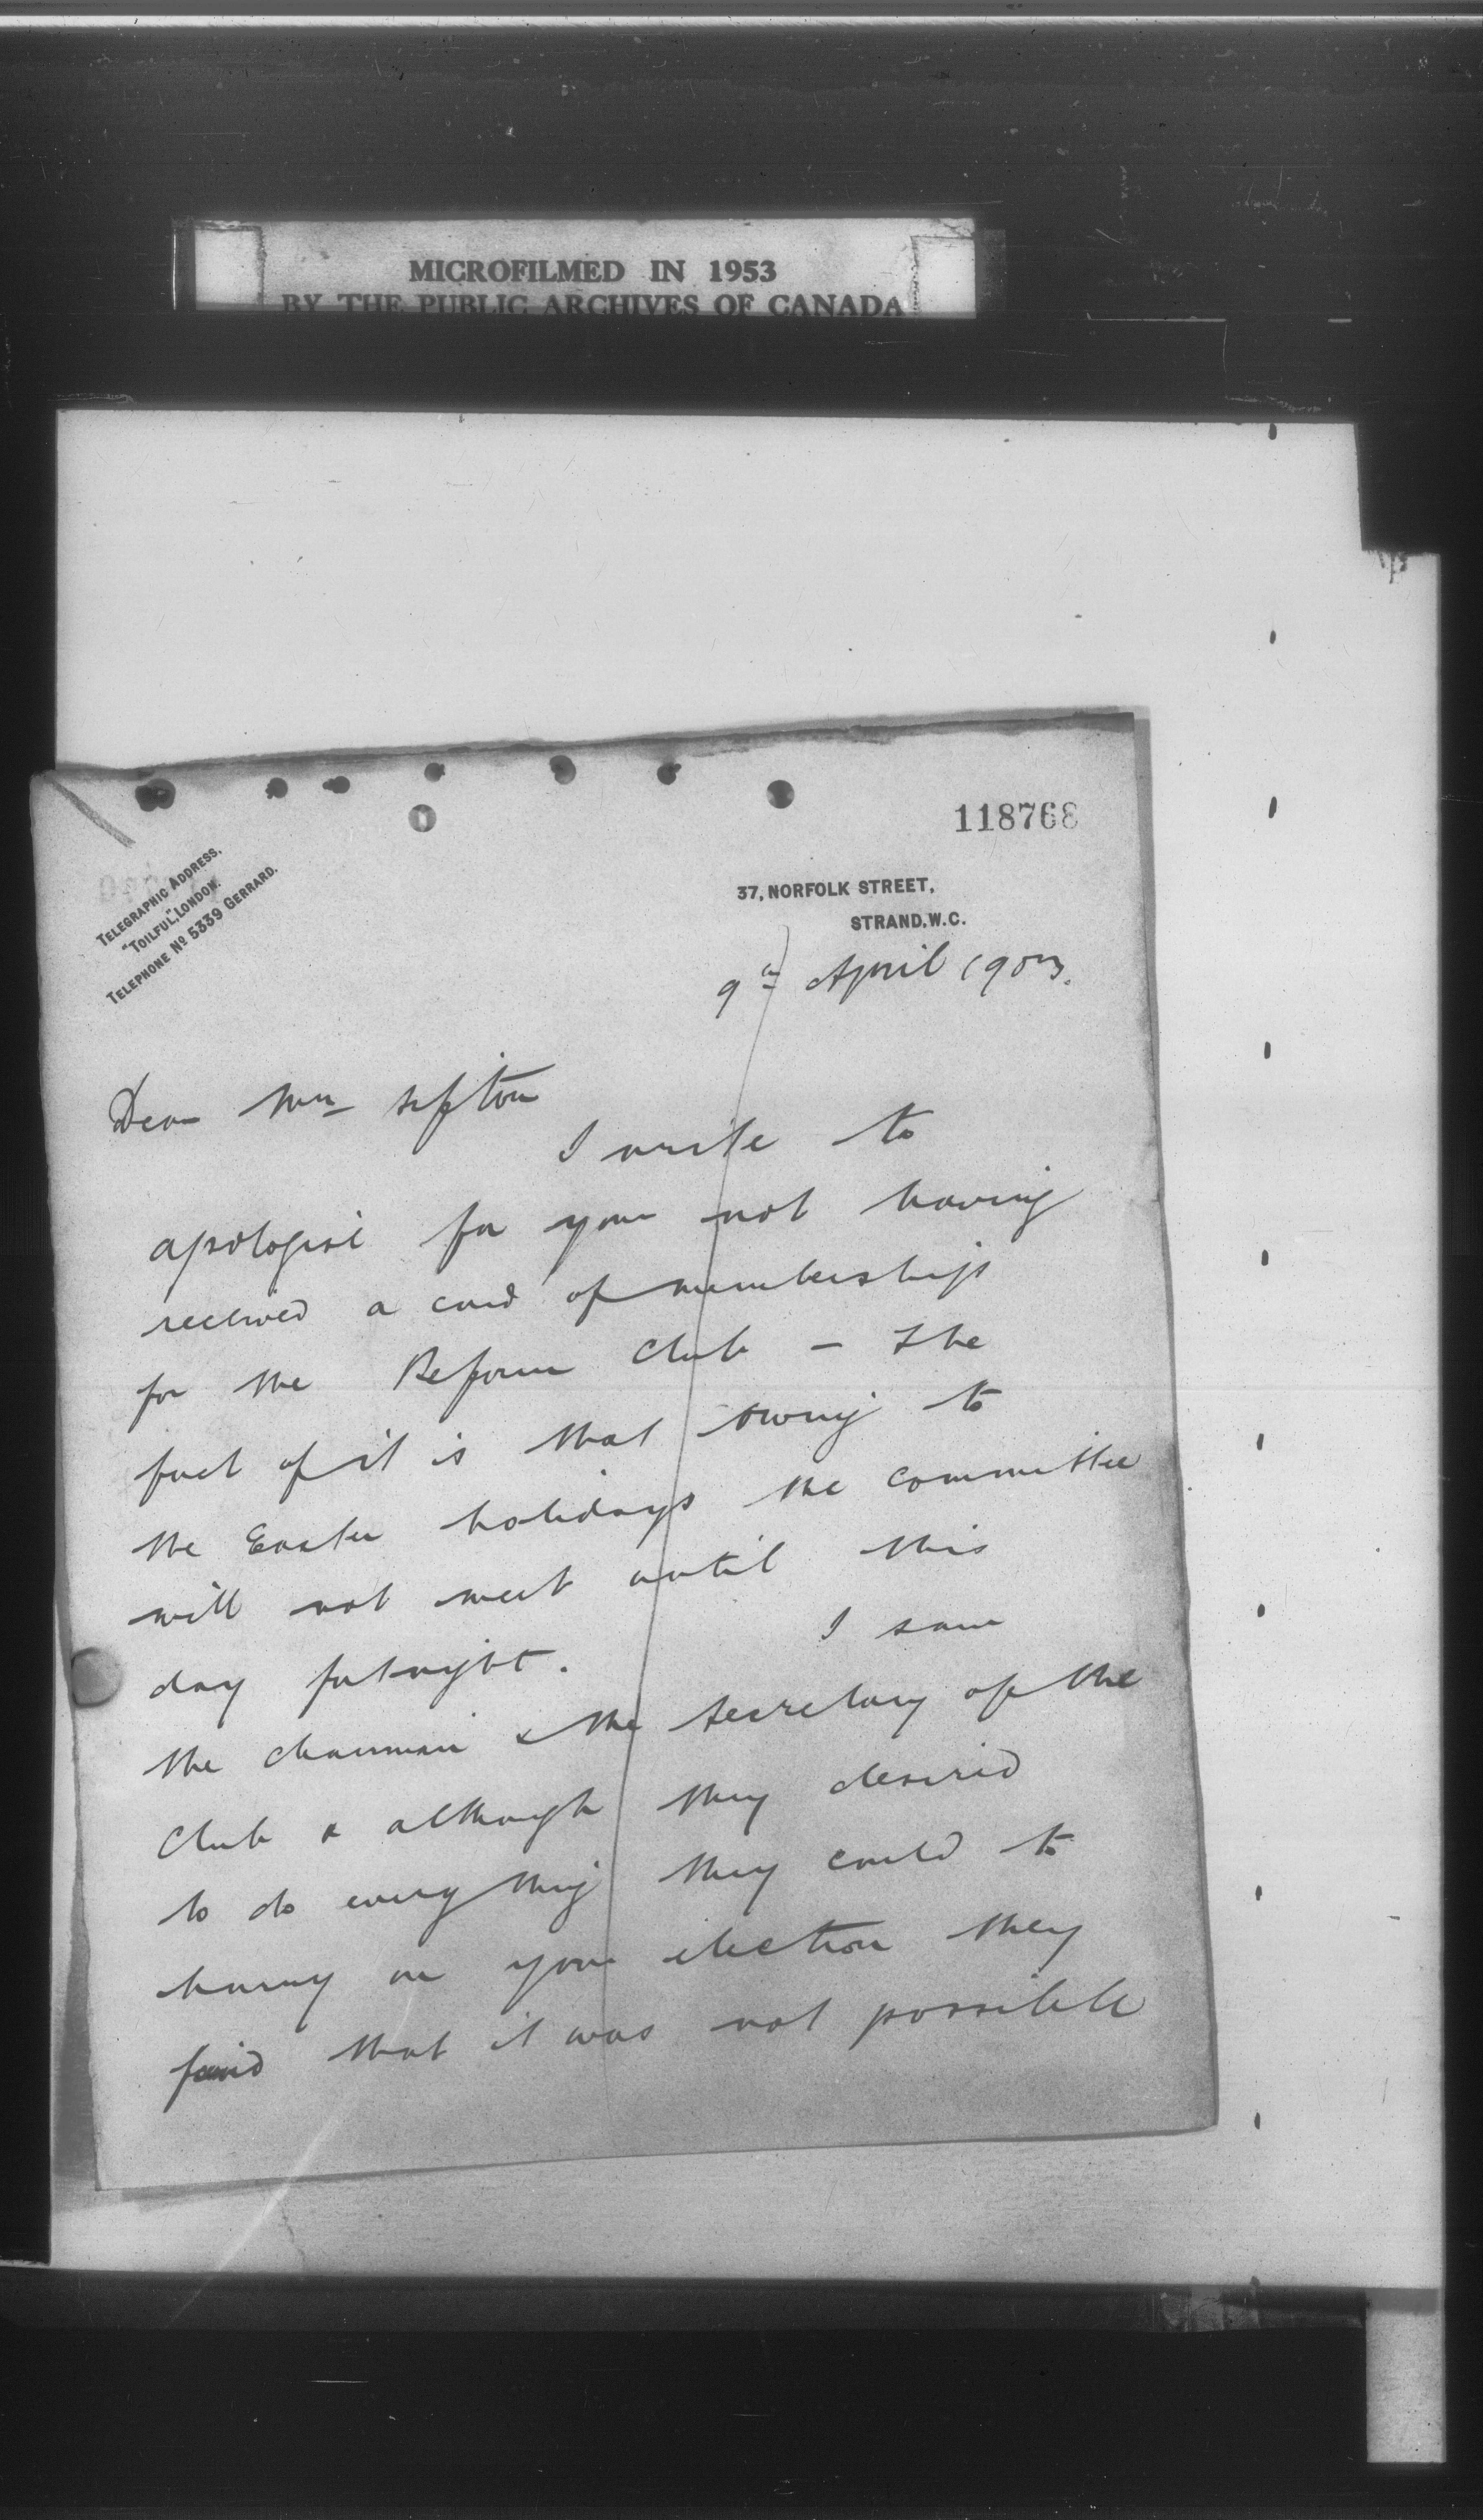 MICROFILMED IN 1953
BY THE PUBLIC ARCHIVES OF CANADA
118768
TELEGRAPHIC ADDRESS.
"TOILFUL", LONDON.
TELEPHONE Nº 5339 GERRARD.
37, NORFOLK STREET,
STRAND, W.C.
9th April 1903.
Dear Mr Sifton
I write to
apologise for your not having
received a card of membership
for the Reform Club – The
fact of it is that owing to
the Easter holidays the committee
will not meet until this
day fortnight.
I saw
the chairman & the secretary of the
Club & although they desired
to do everything they could to
hurry on your election they
found that it was not possible